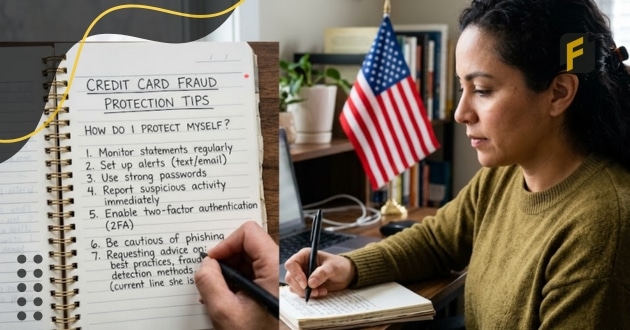 CREDIT CARD FRAUD
PROTECTION TIPS
HOW DO I PROTECT MYSELF?
1. Monitor statements regularly
2. Set up alerts (text/email)
3. Use strong passwords
4. Report suspicious activity
immediately
5. Enable two-factor authentication
(2FA)
6. Be cautious of phishing
7. Requesting advice on:
best practices, fraud
detection methods
(current line she is
F